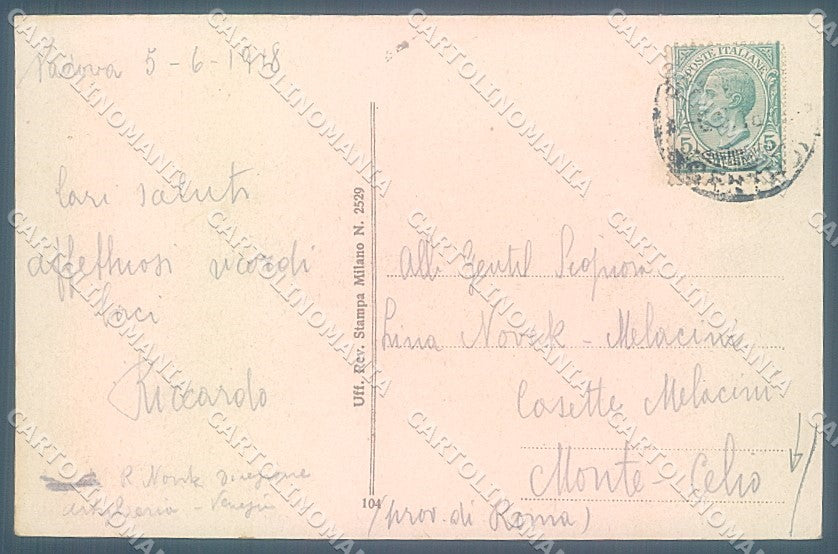 Padova 5-6-1918
Cari saluti
affettuosi ricordi
baci
Riccardo
R. Novik Direzione
Artiglieria - Venezia
Uff. Rev. Stampa Milano N. 2529
104
POSTE ITALIANE
5 5
Alla Gentil Signora
Lina Novik - Melacini
Casette Melacini
Monte-Celio
(prov. di Roma)
CARTOLINOMANIA